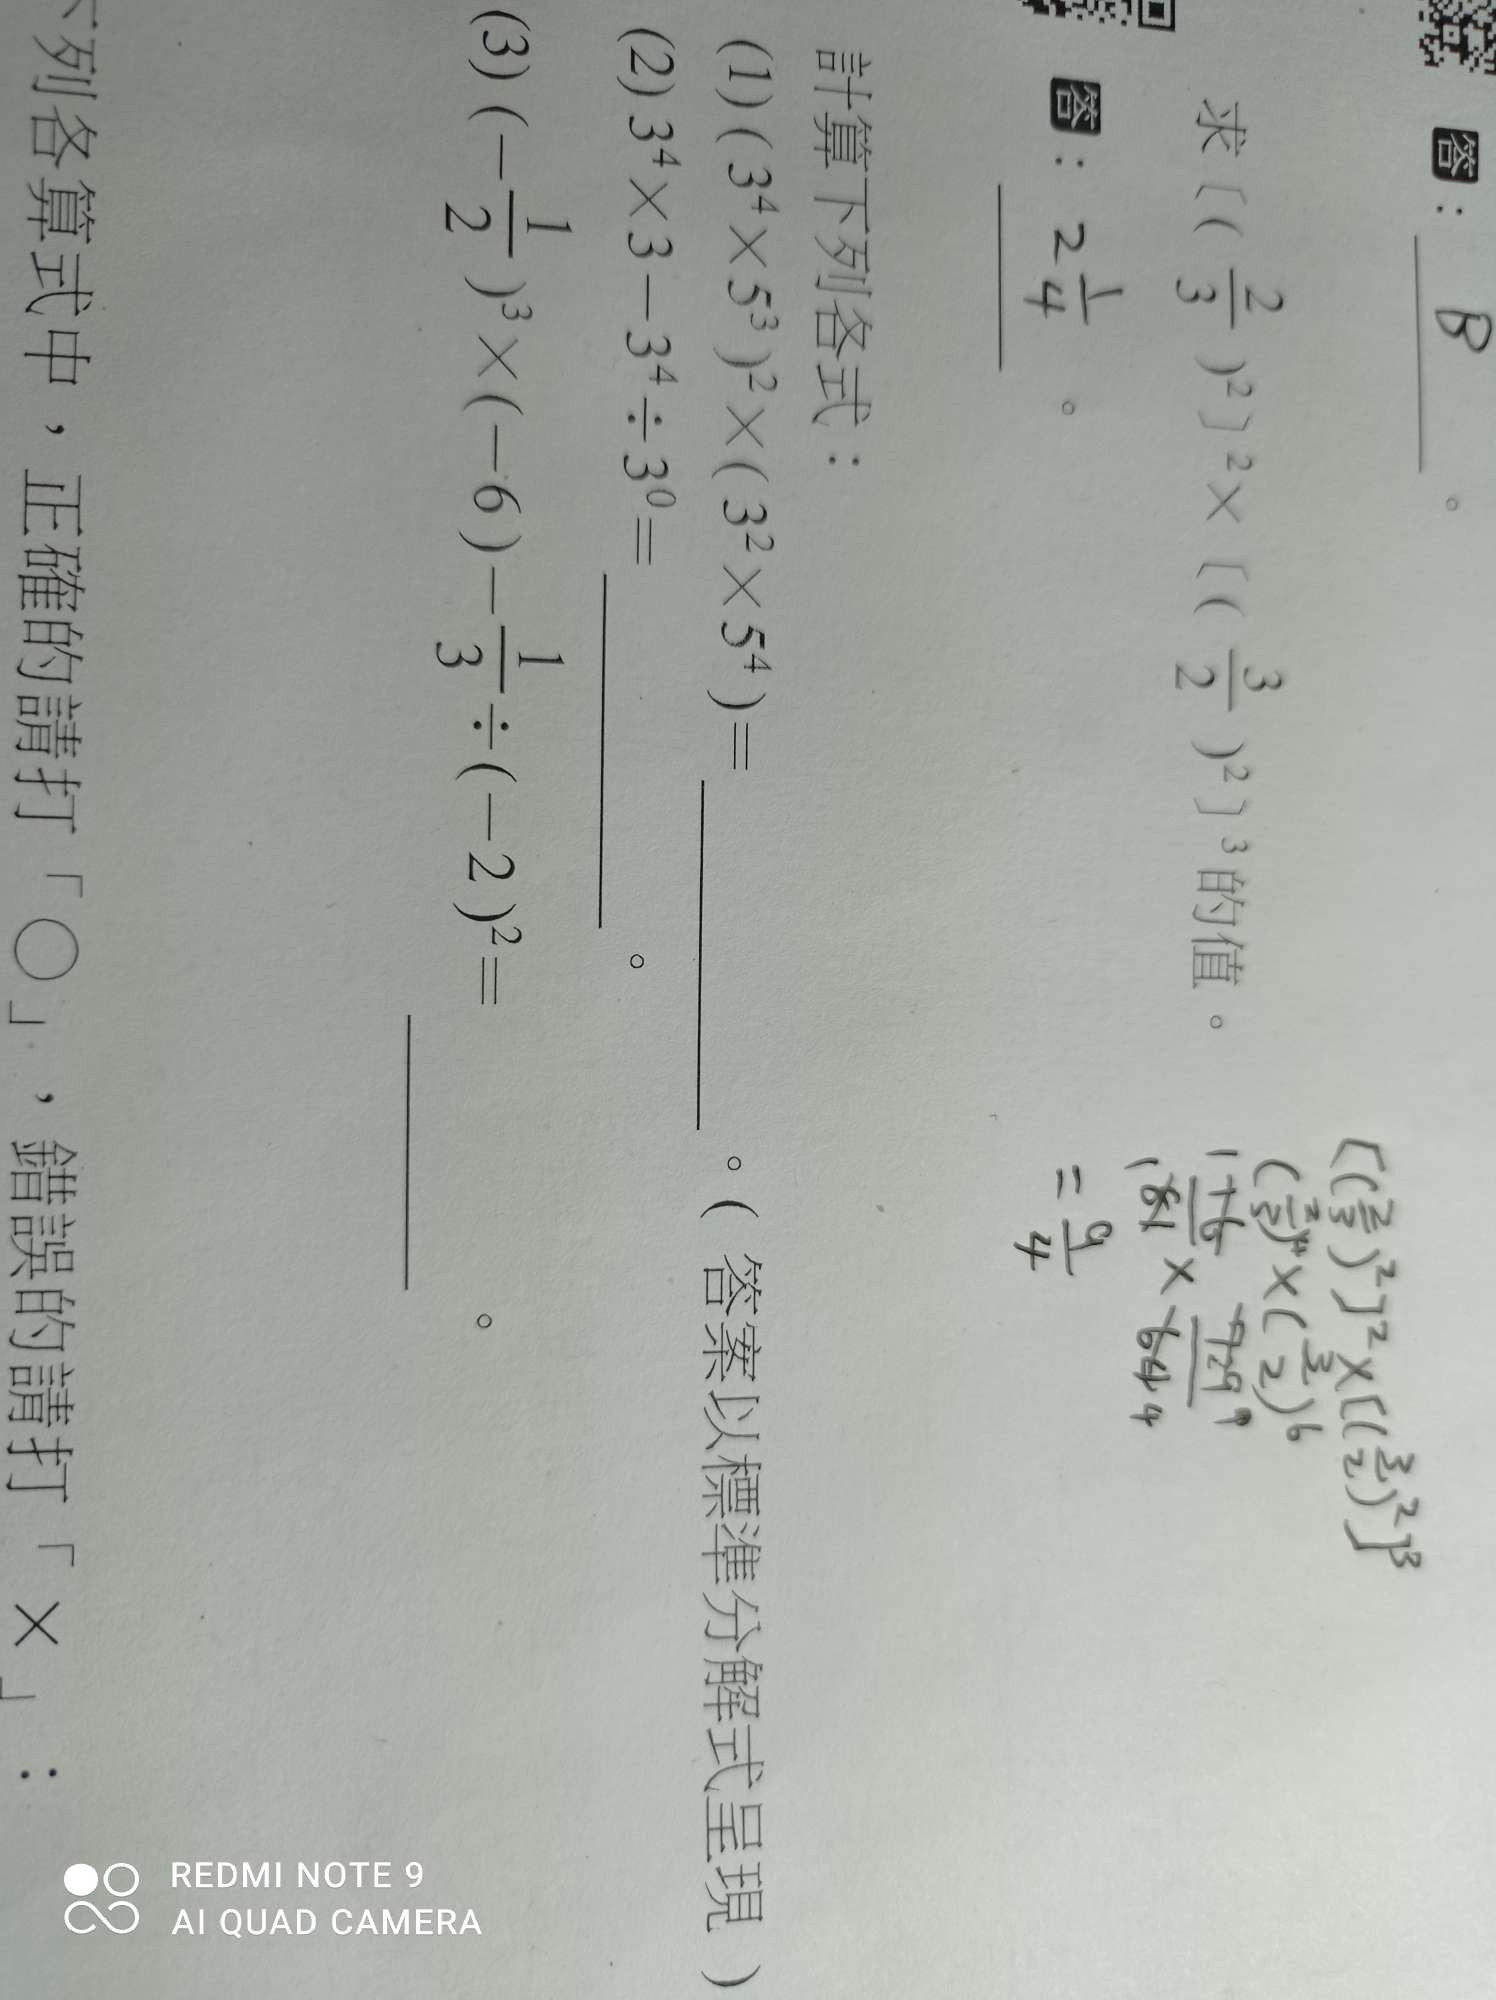 答：B。
求〔(2/3)²〕²×〔(3/2)²〕³的值。
[(2/3)²]²×[(3/2)²]³
(2/3)⁴×(3/2)⁶
1 16/81 × 729/64 9
1 4
= 9/4
答：2 1/4。
計算下列各式：
(1)(3⁴×5³)²×(3²×5⁴)=。(答案以標準分解式呈現)
(2)3⁴×3－3⁴÷3⁰=。
(3)(－1/2)³×(－6)－1/3÷(－2)²=。
列各算式中，正確的請打「○」，錯誤的請打「×」：
REDMI NOTE 9
AI QUAD CAMERA